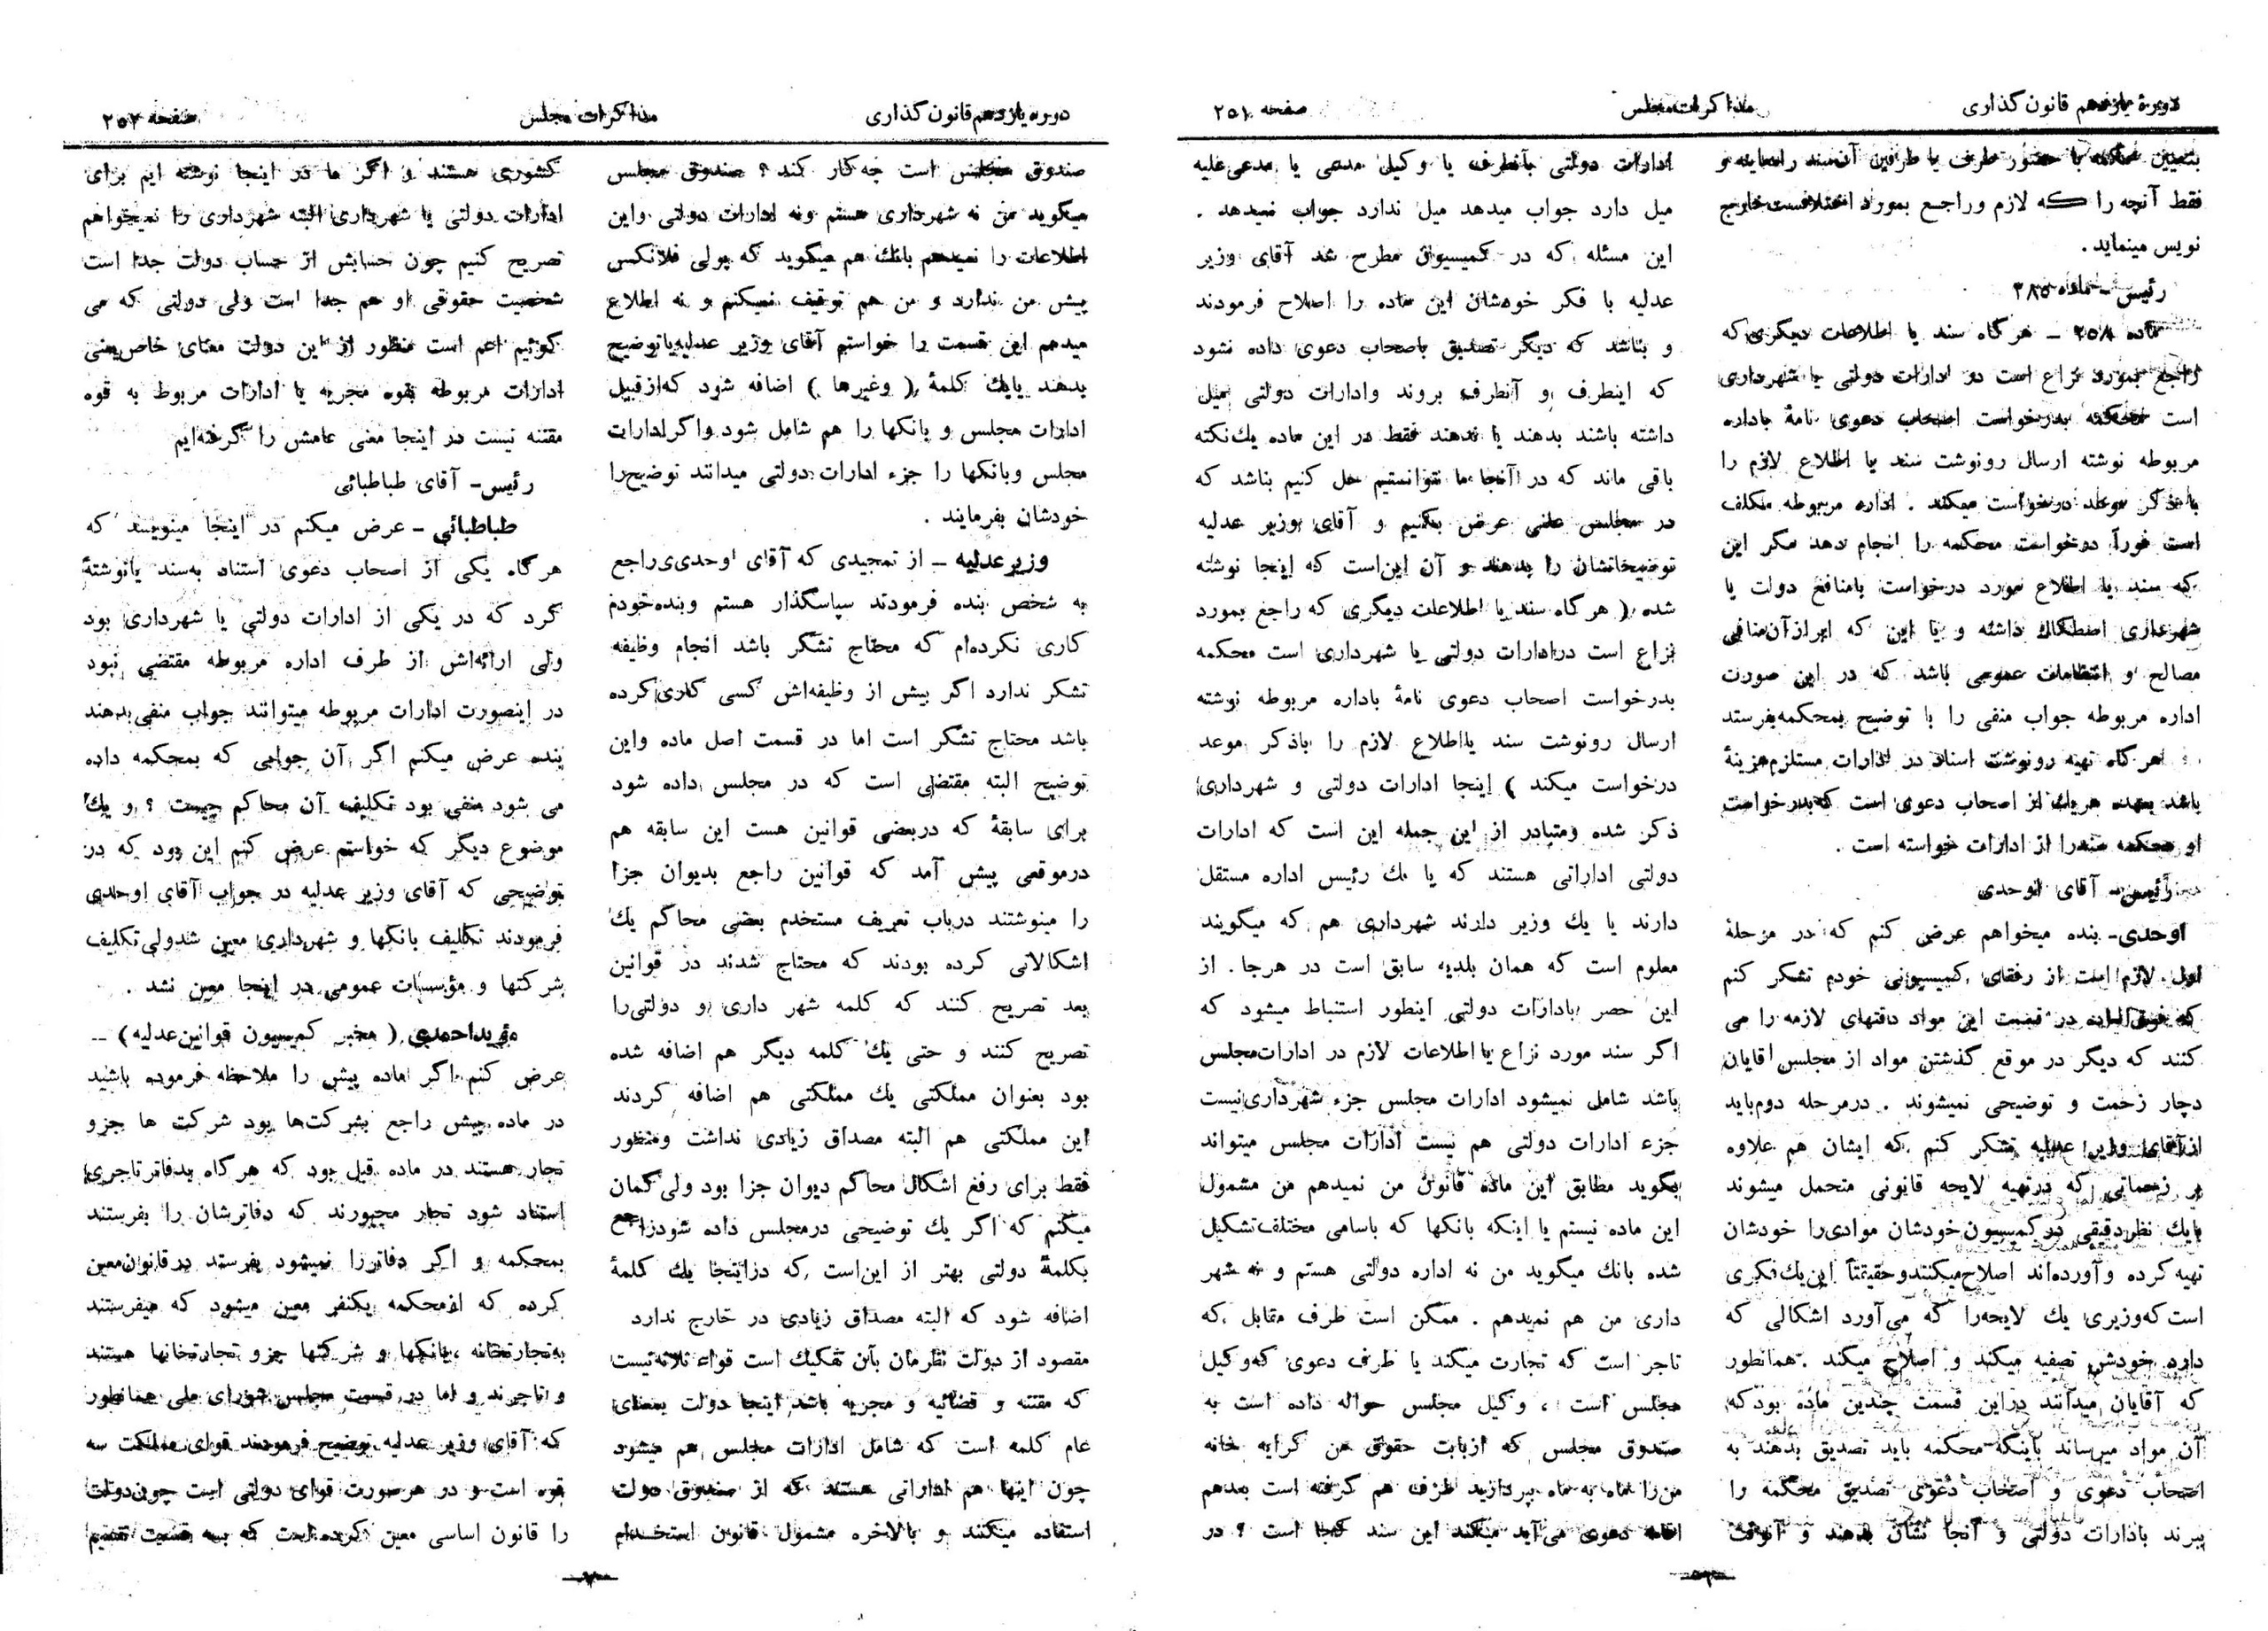 دورهٔ یازدهم قانون گذاری
مذاکرات مجلس
صفحه ۲۵۱
بتعیین محکمه با حضور طرف یا طرفین آن سند را معاینه و
فقط آنچه را که لازم و راجع بمورد اختلافست خارج
نویس مینماید .
رئیس - ماده ۳۸۵
ماده ۲۵۸ - هر گاه سند یا اطلاعات دیگری که
راجع بمورد نزاع است در ادارات دولتی یا شهرداری
است محکمه بدرخواست اصحاب دعوی نامهٔ باداره
مربوطه نوشته ارسال رونوشت سند یا اطلاع لازم را
با ذکر موعد درخواست میکند . اداره مربوطه مکلف
است فوراً درخواست محکمه را انجام دهد مگر این
که سند یا اطلاع مورد درخواست بامنافع دولت یا
شهرداری اصطکاك داشته و یا این که ابراز آن منافی
مصالح و انتظامات عمومی باشد که در این صورت
اداره مربوطه جواب منفی را با توضیح بمحکمه بفرستد
و هر گاه تهیه رونوشت اسناد در ادارات مستلزم هزینهٔ
باشد بعهده هر یك از اصحاب دعوی است که بدرخواست
او محکمه سند را از ادارات خواسته است .
رئیس - آقای اوحدی
اوحدی - بنده میخواهم عرض کنم که در مرحلهٔ
اول لازم است از رفقای کمیسیونی خودم تشکر کنم
که فوق‌العاده در قسمت این مواد دقتهای لازمه را می
کنند که دیگر در موقع گذشتن مواد از مجلس آقایان
دچار زحمت و توضیحی نمیشوند . در مرحله دوم باید
از آقای وزیر عدلیه تشکر کنم که ایشان هم علاوه
بر زحماتی که در تهیه لایحه قانونی متحمل میشوند
با یك نظر دقیقی در کمیسیون خودشان موادی را خودشان
تهیه کرده و آورده‌اند اصلاح میکنند و حقیقتاً این یك فکری
است که وزیری یك لایحه را که می‌آورد اشکالی که
دارد خودش تصفیه میکند و اصلاح میکند . همانطور
که آقایان میدانند در این قسمت چندین ماده بود که
آن مواد میرساند باینکه محکمه باید تصدیق بدهند به
اصحاب دعوی و اصحاب دعوی تصدیق محکمه را
ببرند بادارات دولتی و آنجا نشان بدهند و آنوقت
ادارات دولتی بآنطرف یا وکیل مدعی یا مدعی علیه
میل دارد جواب میدهد میل ندارد جواب نمیدهد .
این مسئله که در کمیسیون مطرح شد آقای وزیر
عدلیه با فکر خودشان این ماده را اصلاح فرمودند
و بناشد که دیگر تصدیق باصحاب دعوی داده نشود
که اینطرف و آنطرف بروند وادارات دولتی میل
داشته باشند بدهند یا ندهند فقط در این ماده یك نکته
باقی ماند که در آنجا ما نتوانستیم حل کنیم بناشد که
در مجلس علنی عرض بکنیم و آقای وزیر عدلیه
توضیحاتشان را بدهند و آن این است که اینجا نوشته
شده ( هر گاه سند یا اطلاعات دیگری که راجع بمورد
نزاع است در ادارات دولتی یا شهرداری است محکمه
بدرخواست اصحاب دعوی نامهٔ باداره مربوطه نوشته
ارسال رونوشت سند یا اطلاع لازم را باذکر موعد
درخواست میکند ) اینجا ادارات دولتی و شهرداری
ذکر شده و متبادر از این جمله این است که ادارات
دولتی اداراتی هستند که یا یك رئیس اداره مستقل
دارند یا یك وزیر دارند شهرداری هم که میگویند
معلوم است که همان بلدیه سابق است در هرجا . از
این حصر بادارات دولتی اینطور استنباط میشود که
اگر سند مورد نزاع یا اطلاعات لازم در ادارات مجلس
باشد شامل نمیشود ادارات مجلس جزء شهرداری نیست
جزء ادارات دولتی هم نیست ادارات مجلس میتواند
بگوید مطابق این ماده قانون من نمیدهم من مشمول
این ماده نیستم یا اینکه بانکها که باسامی مختلف تشکیل
شده بانك میگوید من نه اداره دولتی هستم و نه شهر
داری من هم نمیدهم . ممکن است طرف مقابل که
تاجر است که تجارت میکند یا طرف دعوی که وکیل
مجلس است ، وکیل مجلس حواله داده است به
صندوق مجلس که از بابت حقوق من کرایه خانه
من را ماه به ماه بپردازید طرف هم گرفته است بعد هم
اقامه دعوی می‌آید میکند این سند کجا است ؟ در
دوره یازدهم قانون گذاری
مذاکرات مجلس
صفحه ۲۵۲
صندوق مجلس است چه کار کند ؟ صندوق مجلس
میگوید من نه شهرداری هستم ونه ادارات دولتی واین
اطلاعات را نمیدهم بانك هم میگوید که پولی فلانکس
پیش من ندارد و من هم توقیف نمیکنم و نه اطلاع
میدهم این قسمت را خواستم آقای وزیر عدلیه یا توضیح
بدهند یا یك کلمهٔ ( وغیرها ) اضافه شود که از قبیل
ادارات مجلس و بانکها را هم شامل شود واگر ادارات
مجلس وبانکها را جزء ادارات دولتی میدانند توضیح را
خودشان بفرمایند .
وزیر عدلیه - از تمجیدی که آقای اوحدی راجع
به شخص بنده فرمودند سپاسگذار هستم وبنده خودم
کاری نکرده‌ام که محتاج تشکر باشد انجام وظیفه
تشکر ندارد اگر بیش از وظیفه‌اش کسی کاری کرده
باشد محتاج تشکر است اما در قسمت اصل ماده واین
توضیح البته مقتضی است که در مجلس داده شود
برای سابقهٔ که در بعضی قوانین هست این سابقه هم
در موقعی پیش آمد که قوانین راجع بدیوان جزا
را مینوشتند در باب تعریف مستخدم بعضی محاکم یك
اشکالاتی کرده بودند که محتاج شدند در قوانین
بعد تصریح کنند که کلمه شهر داری و دولتی را
تصریح کنند و حتی یك کلمه دیگر هم اضافه شده
بود بعنوان مملکتی یك مملکتی هم اضافه کردند
این مملکتی هم البته مصداق زیادی نداشت ومنظور
فقط برای رفع اشکال محاکم دیوان جزا بود ولی گمان
میکنم که اگر یك توضیحی در مجلس داده شود راجع
بکلمهٔ دولتی بهتر از این است که در اینجا یك کلمهٔ
اضافه شود که البته مصداق زیادی در خارج ندارد
مقصود از دولت نظرمان بآن تفکیك است قواء ثلاثه نیست
که مقننه و قضائیه و مجریه باشد اینجا دولت بمعنای
عام کلمه است که شامل ادارات مجلس هم میشود
چون اینها هم اداراتی هستند که از صندوق دولت
استفاده میکنند و بالاخره مشمول قانون استخدام
کشوری هستند و اگر ما در اینجا نوشته ایم برای
ادارات دولتی یا شهرداری البته شهرداری را نمیخواهم
تصریح کنیم چون حسابش از حساب دولت جدا است
شخصیت حقوقی او هم جدا است ولی دولتی که می
گوئیم اعم است منظور از این دولت معنای خاص یعنی
ادارات مربوطه بقوه مجریه یا ادارات مربوط به قوه
مقننه نیست در اینجا معنی عامش را گرفته‌ایم
رئیس - آقای طباطبائی
طباطبائی - عرض میکنم در اینجا مینویسد که
هرگاه یکی از اصحاب دعوی استناد به سند یا نوشتهٔ
کرد که در یکی از ادارات دولتی یا شهرداری بود
ولی ارائه‌اش از طرف اداره مربوطه مقتضی نبود
در اینصورت ادارات مربوطه میتوانند جواب منفی بدهند
بنده عرض میکنم اگر آن جوابی که بمحکمه داده
می شود منفی بود تکلیف آن محاکم چیست ؟ و یك
موضوع دیگر که خواستم عرض کنم این بود که در
توضیحی که آقای وزیر عدلیه در جواب آقای اوحدی
فرمودند تکلیف بانکها و شهرداری معین شد ولی تکلیف
شرکتها و مؤسسات عمومی در اینجا معین نشد .
مؤید احمدی ( مخبر کمیسیون قوانین عدلیه ) -
عرض کنم اگر ماده پیش را ملاحظه فرموده باشید
در ماده پیش راجع بشرکت‌ها بود شرکت ها جزو
تجار هستند در ماده قبل بود که هر گاه بدفاتر تاجری
استناد شود تجار مجبورند که دفاترشان را بفرستند
بمحکمه و اگر دفاتر را نمیشود بفرستد در قانون معین
کرده که از محکمه یکنفر معین میشود که میفرستند
به تجارتخانه ، بانکها و شرکتها جزو تجارتخانها هستند
و تاجرند و اما در قسمت مجلس شورای ملی همانطور
که آقای وزیر عدلیه توضیح فرمودند قوای مملکت سه
قوه است و در هر صورت قوای دولتی است چون دولت
را قانون اساسی معین کرده است که به سه قسمت تقسیم